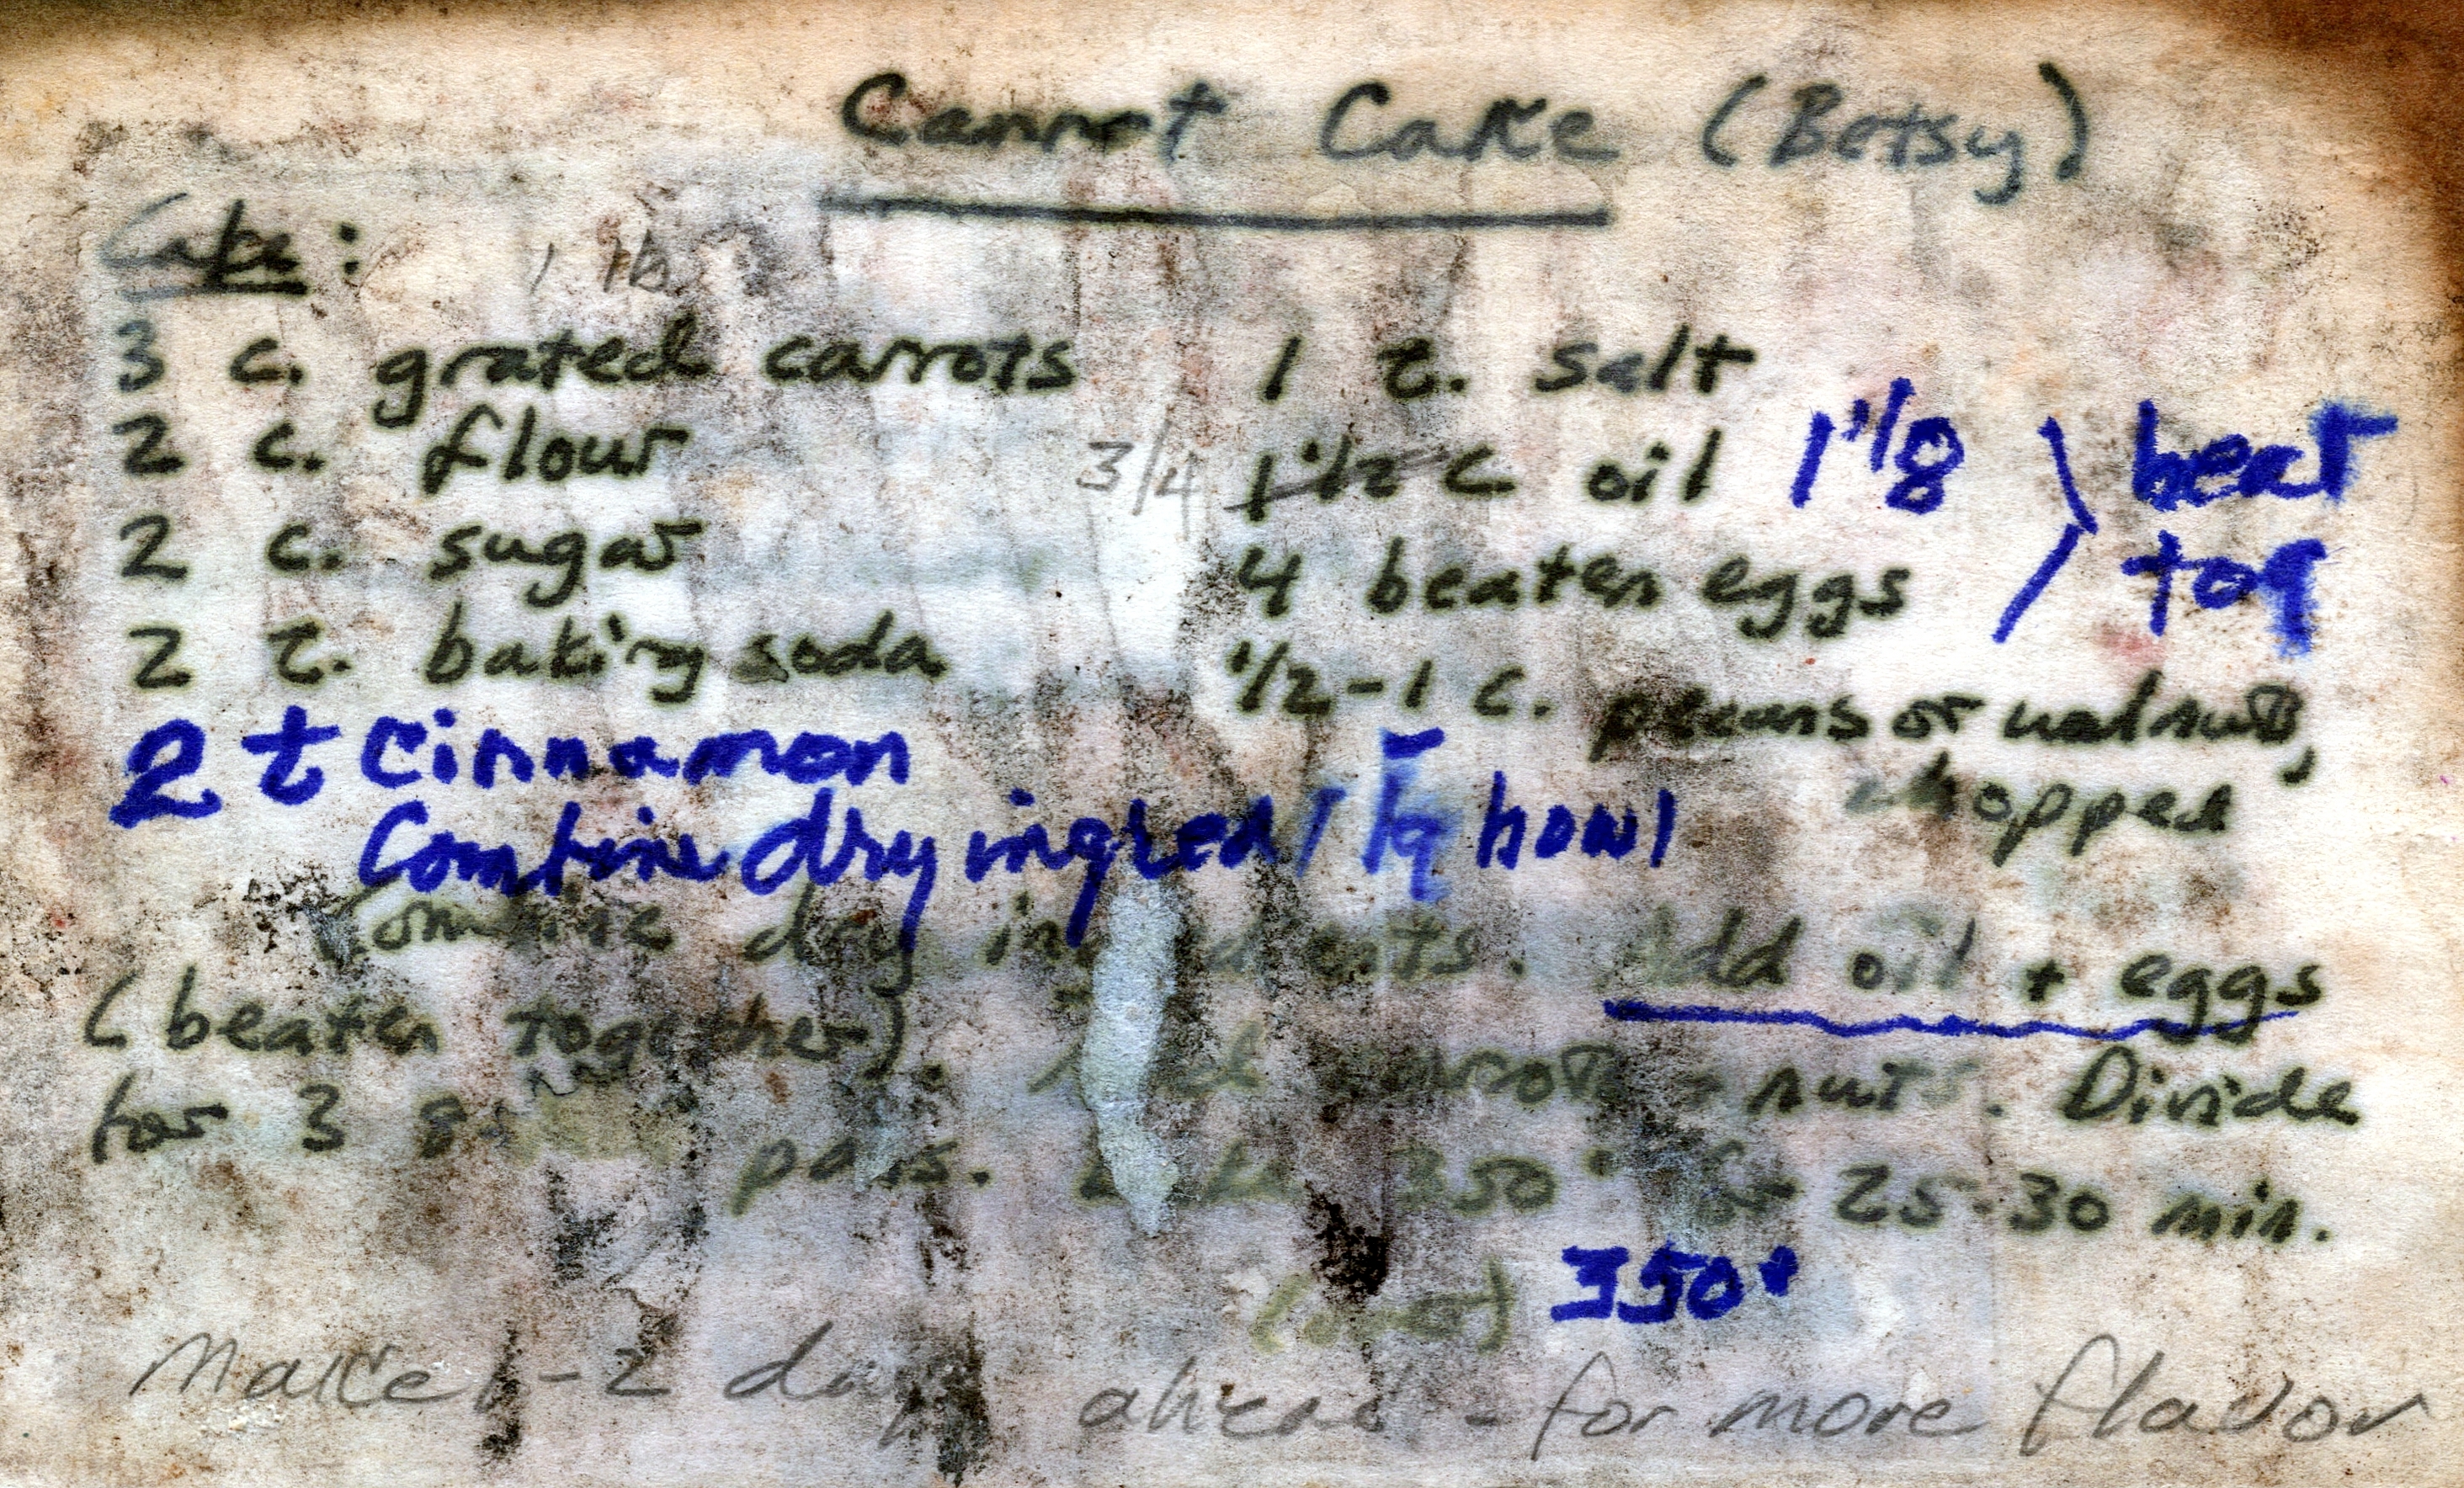 Carrot Cake (Betsy)
Cake:
1 lb
3 c. grated carrots
2 c. flour
2 c. sugar
2 t. baking soda
2 t cinnamon
1 t. salt
3/4 1 1/2 c oil 1 1/8
4 beaten eggs
beat
tog
1/2-1 c. pecans or walnuts,
chopped
Combine dry ingred bowl
Combine dry ingredients. Add oil + eggs
(beaten together). Add carrots + nuts. Divide
for 3 pans. 350° for 25-30 min.
350°
Make 1-2 days ahead - for more flavor